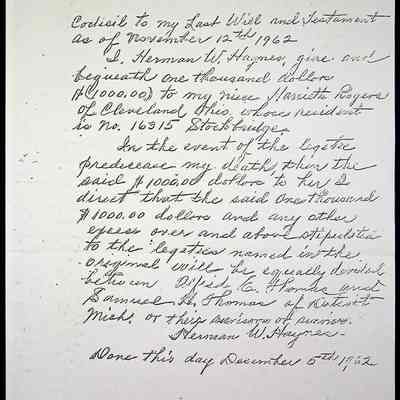 Codicil to my Last Will and Testament
as of November 12th 1962
I, Herman W. Haynes, give and
bequeath one thousand dollars
$(1000.00) to my niece Harriett Rogers
of Cleveland Ohio whose resident
is No. 16315 Stockbridge.
In the event of the legatee
predecease my death, then the
said $1000.00 dollars to her I
direct that the said One thousand
$1000.00 dollars and any other
excess over and above stipulated
to the legaties named in the
original will be equally devided
between C. Thomas and
Samuel H. Thomas of Detroit
Mich. or their survivors or survivor.
Herman W. Haynes.
Done this day December 5th 1962